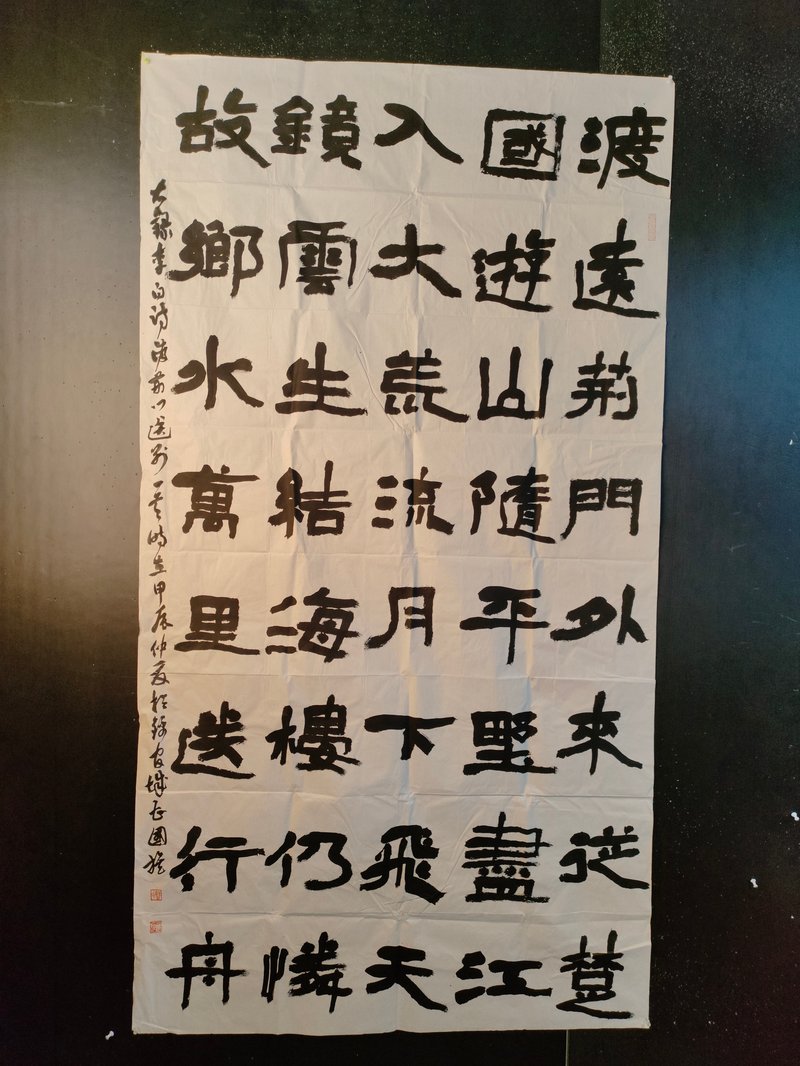 渡遠荆門外來從楚
國遊山隨平墅盡江
入大荒流月下飛天
鏡雲生結海樓仍憐
故鄉水萬里送行舟
錄李白詩渡荆門送別一首時在甲辰仲夏於錦官城國